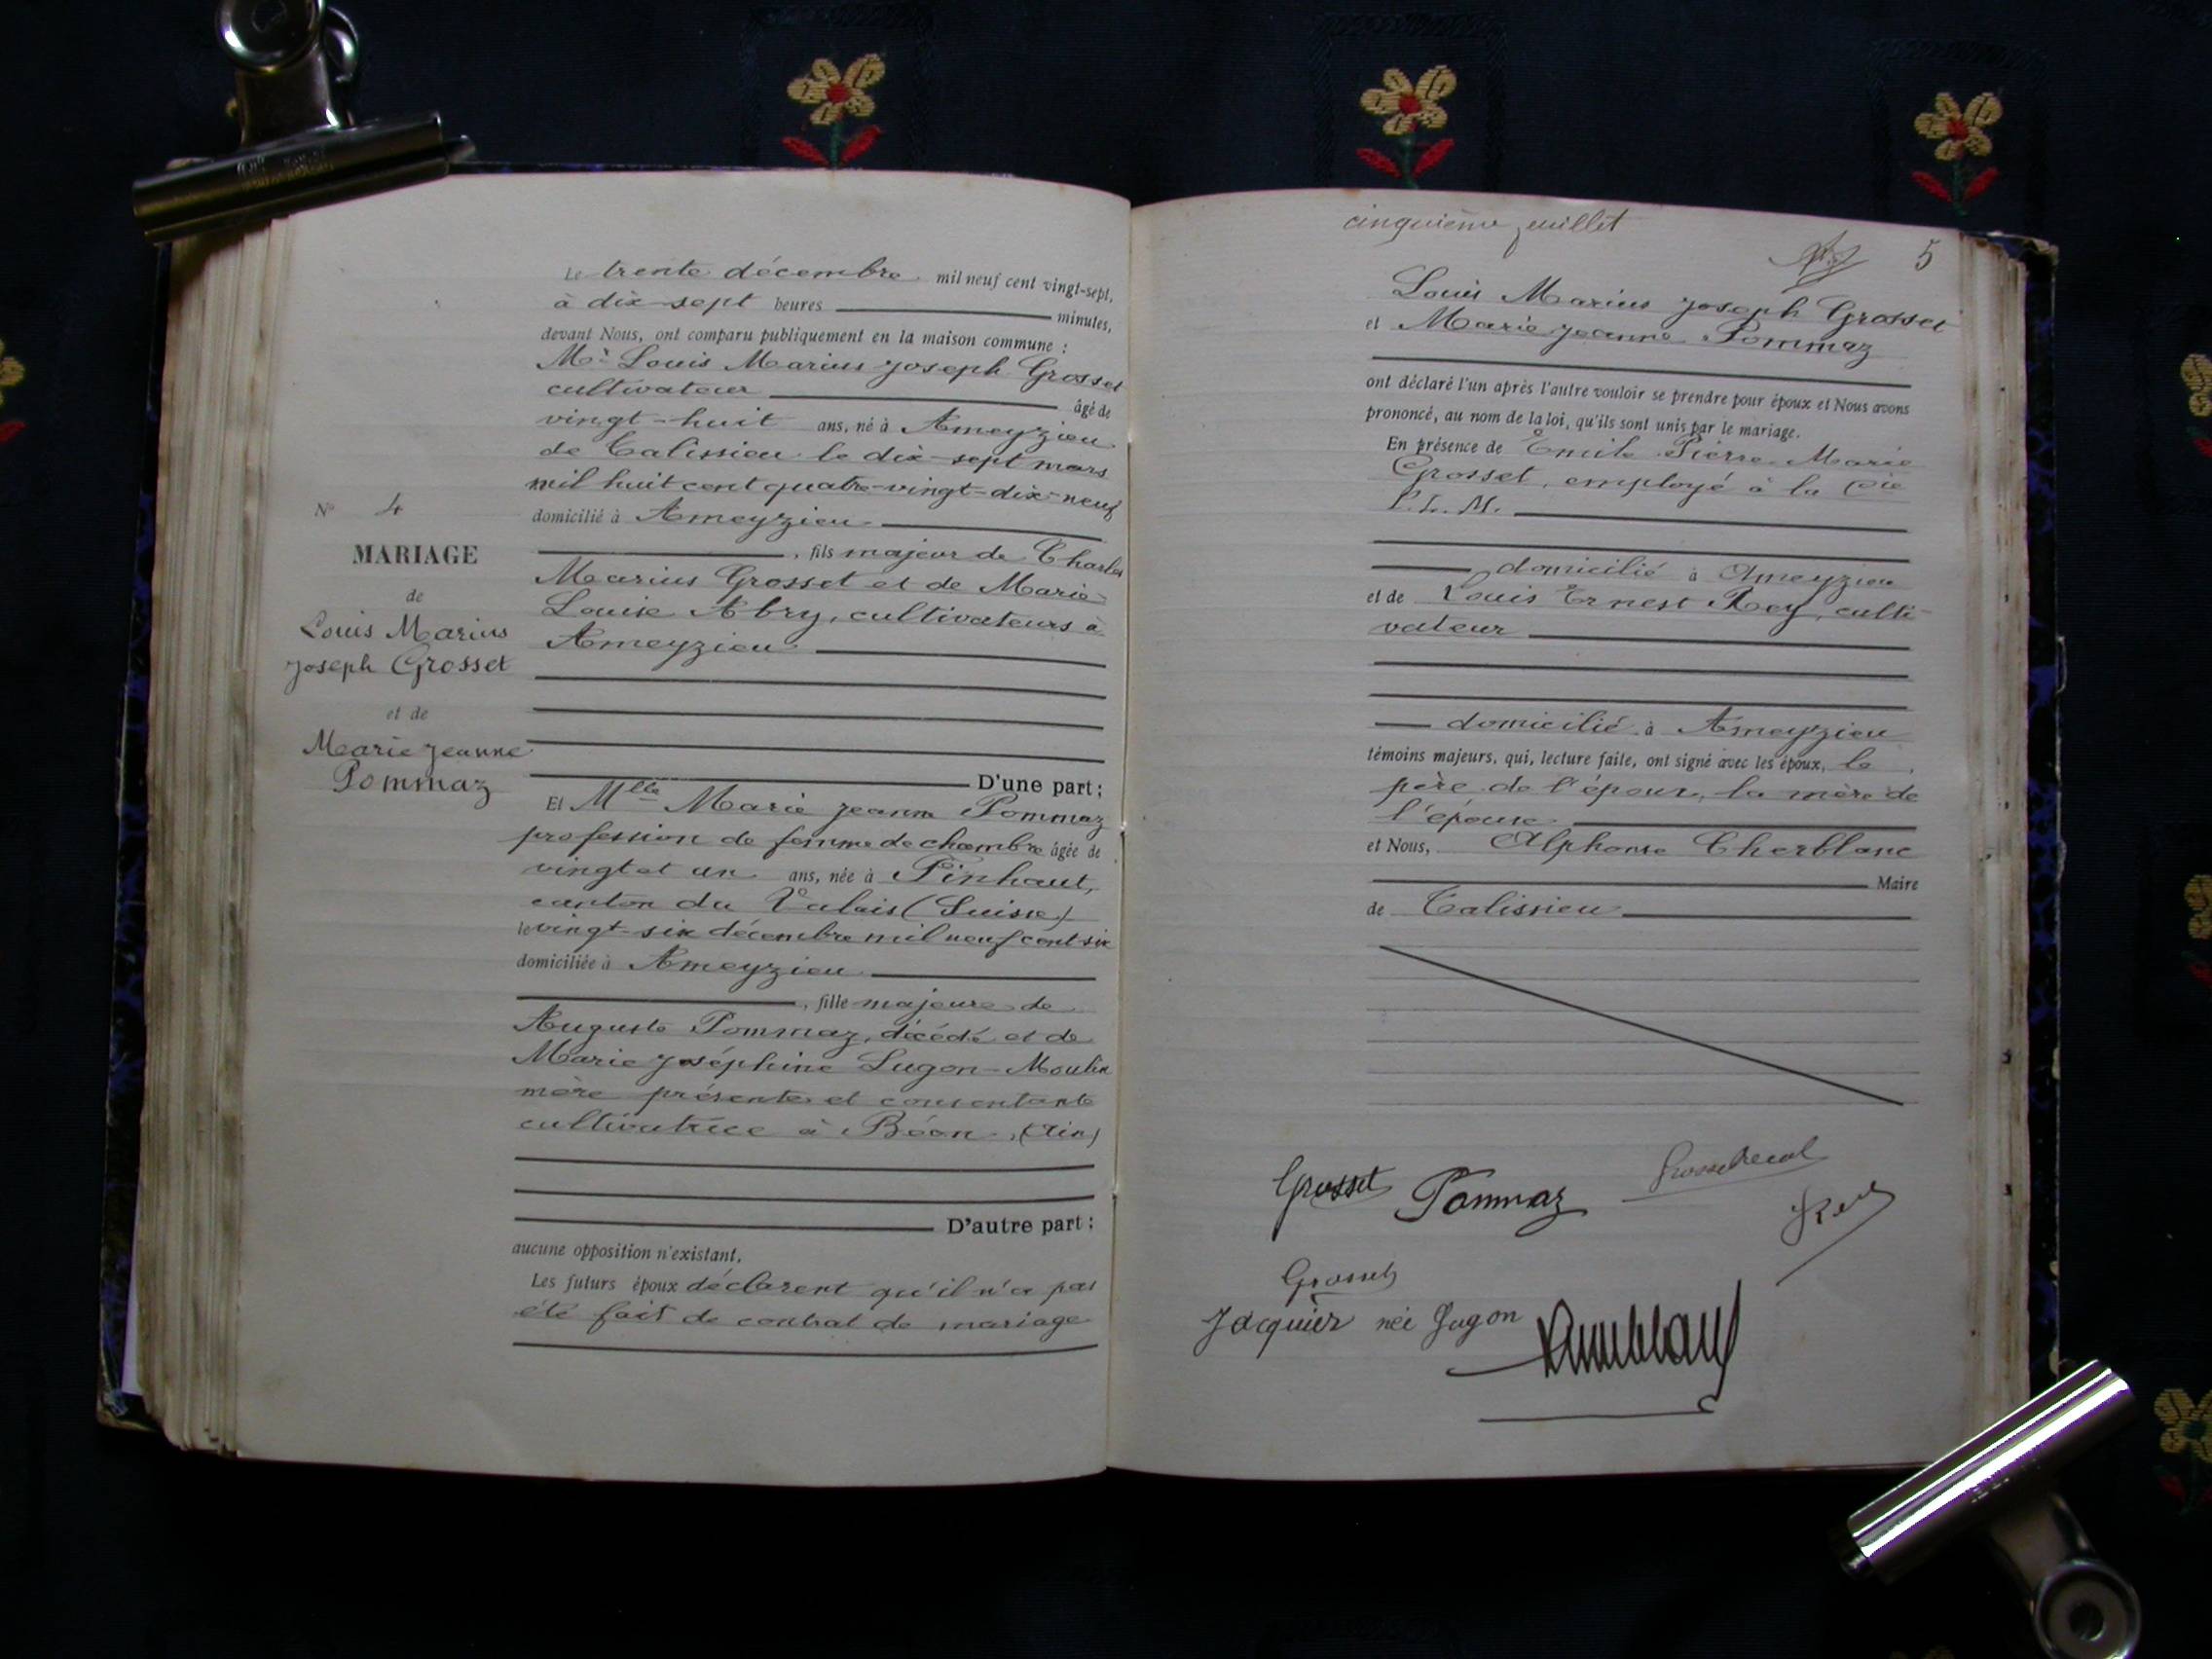 Le trente décembre mil neuf cent vingt-sept,
à dix-sept heures minutes,
devant Nous, ont comparu publiquement en la maison commune :
Mr Louis Marius Joseph Grosset
cultivateur âgé de
vingt-huit ans, né à Ameyzieu
de Talissieu le dix-sept mars
mil huit cent quatre-vingt-dix-neuf
domicilié à Ameyzieu
, fils majeur de Charles
Marius Grosset et de Marie-
Louise Abry, cultivateurs à
Ameyzieu
D'une part ;
N° 4
MARIAGE
de
Louis Marius
Joseph Grosset
et de
Marie Jeanne
Pommaz
Et Mlle Marie Jeanne Pommaz
profession de femme de chambre âgée de
vingt et un ans, née à Finhaut,
canton du Valais (Suisse)
le vingt-six décembre mil neuf cent six
domiciliée à Ameyzieu
, fille majeure de
Auguste Pommaz, décédé et de
Marie Joséphine Lugon-Moulin
mère présente et consentante
cultivatrice à Béon (Ain)
D'autre part ;
aucune opposition n'existant.
Les futurs époux déclarent qu'il n'a pas
été fait de contrat de mariage
cinquième feuillet
5
Louis Marius Joseph Grosset
et Marie Jeanne Pommaz
ont déclaré l'un après l'autre vouloir se prendre pour époux et Nous avons
prononcé, au nom de la loi, qu'ils sont unis par le mariage.
En présence de Emile Pierre Marie
Grosset, employé à la Cie
P. L. M.
domicilié à Ameyzieu
et de Louis Ernest Rey, culti-
vateur
domicilié à Ameyzieu
témoins majeurs, qui, lecture faite, ont signé avec les époux, le
père de l'époux, la mère de
l'épouse
et Nous, Alphonse Cherblanc
Maire
de Talissieu
Grosset Pommaz
Rey
Grosset
Jacquier née Lugon